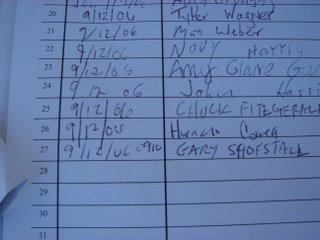 20 9/12/06 Tyler Wagner
21 9/12/06 Matt Weber
22 9/12/06 Harris
23 9/12/06 Amy
24 9 12 06 John Harris
25 9/12/06 CHUCK FITZGERALD
26 9/12/06
27 9/12/06 0910 GARY SHOFSTALL
28
29
30
31